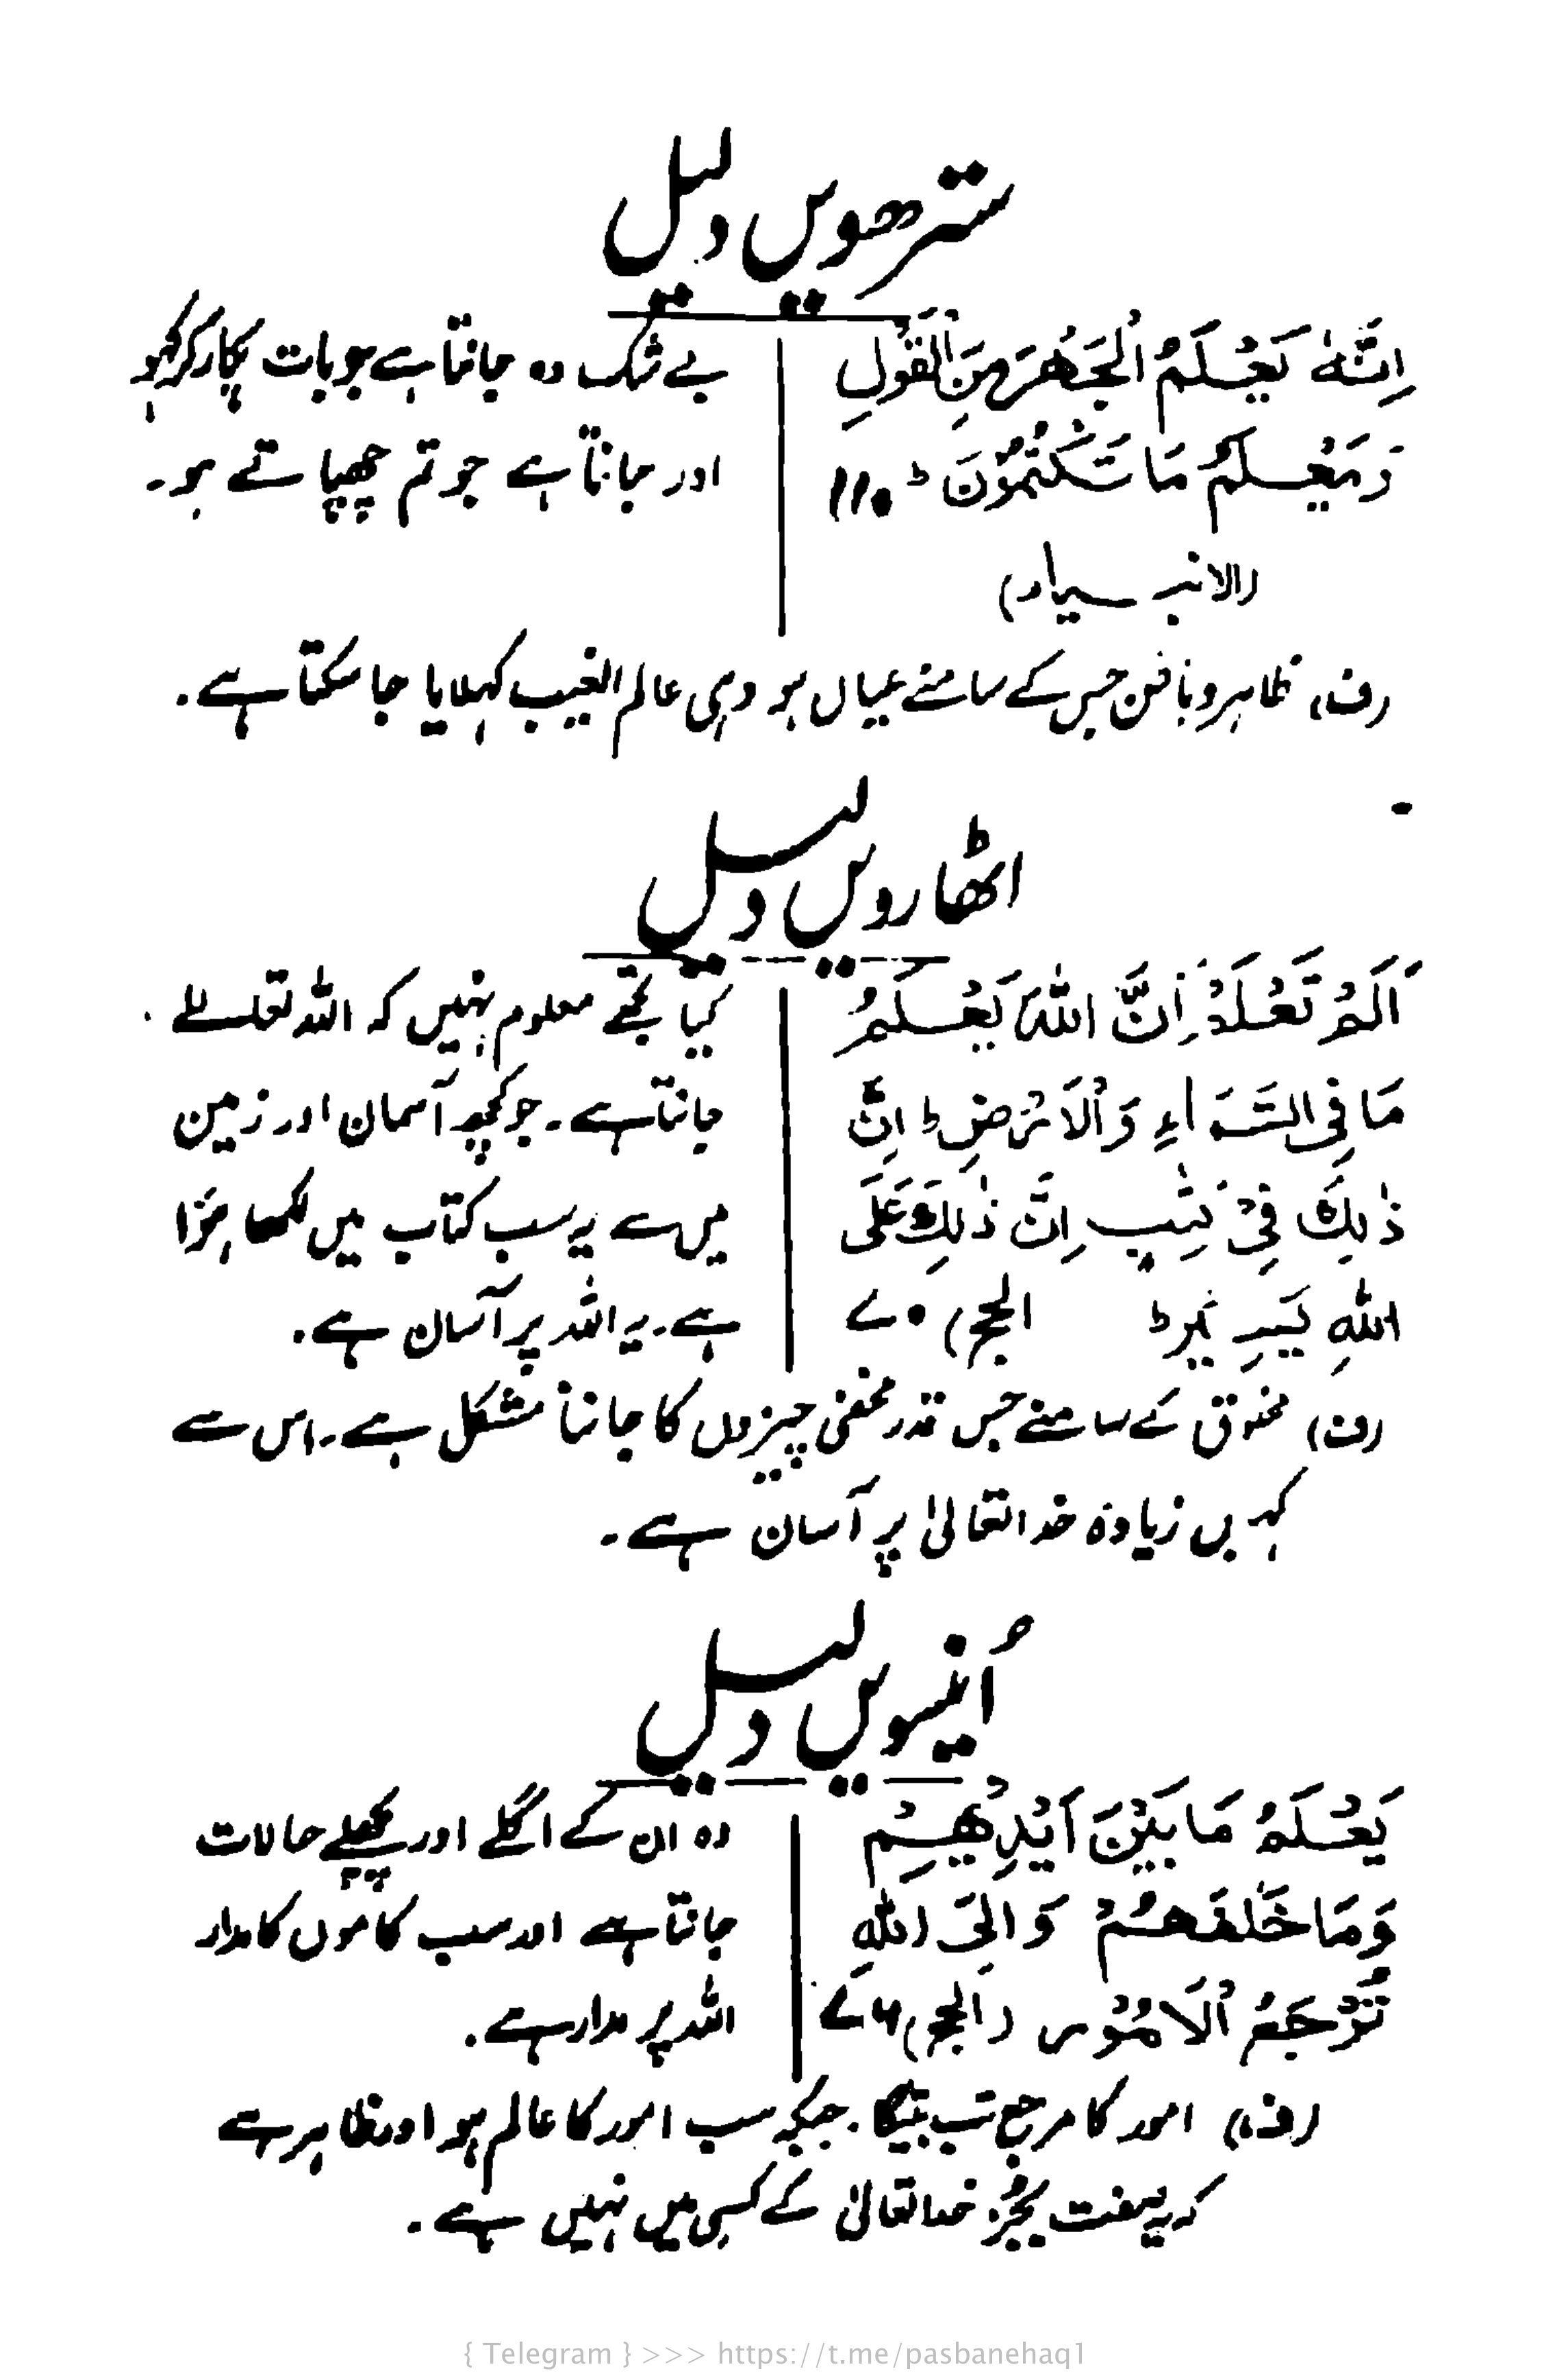 سترھویں دلیل
اِنَّهٗ يَعْلَمُ الْجَهْرَ مِنَ الْقَوْلِ
وَيَعْلَمُ مَا تَكْتُمُوْنَ ط ۱۱۰
(الانبیاء)
بے شک وہ جانتا ہے جو بات پکار کر کہو
اور جانتا ہے جو تم چھپاتے ہو۔
(ف) ظاہر و باطن جس کے سامنے عیاں ہو وہی عالم الغیب کہلایا جا سکتا ہے۔
اٹھارویں دلیل
اَلَمْ تَعْلَمْ اَنَّ اللّٰهَ يَعْلَمُ
مَا فِى السَّمَاءِ وَالْاَرْضِ ط اِنَّ
ذٰلِكَ فِىْ كِتٰبٍ اِنَّ ذٰلِكَ عَلَى
اللّٰهِ يَسِيْرٌ ط الحج) ۷۰
کیا تجھے معلوم نہیں کہ اللہ تعالےٰ
جانتا ہے۔ جو کچھ آسمان اور زمین
میں ہے یہ سب کتاب میں لکھا ہوٴا
ہے۔ یہ اللہ پر آسان ہے۔
(ف) مخلوق کے سامنے جس قدر مخفی چیزوں کا جاننا مشکل ہے۔ اس سے
کہیں زیادہ خدا تعالیٰ پر آسان ہے۔
اُنیسویں دلیل
يَعْلَمُ مَا بَيْنَ اَيْدِيْهِمْ
وَمَا خَلْفَهُمْ وَاِلَى اللّٰهِ
تُرْجَعُ الْاُمُوْر (الحج) ۷۶
وہ ان کے اگلے اور پچھلے حالات
جانتا ہے اور سب کاموں کا مدار
اللہ پر مدار ہے۔
(ف) امور کا مرجع تب بنیگا۔ جبکہ سب امور کا عالم ہو اور ظاہر ہے
کہ یہ صفت بجُز خدا تعالیٰ کے کسی میں نہیں ہے۔
{ Telegram } >>> https://t.me/pasbanehaq1